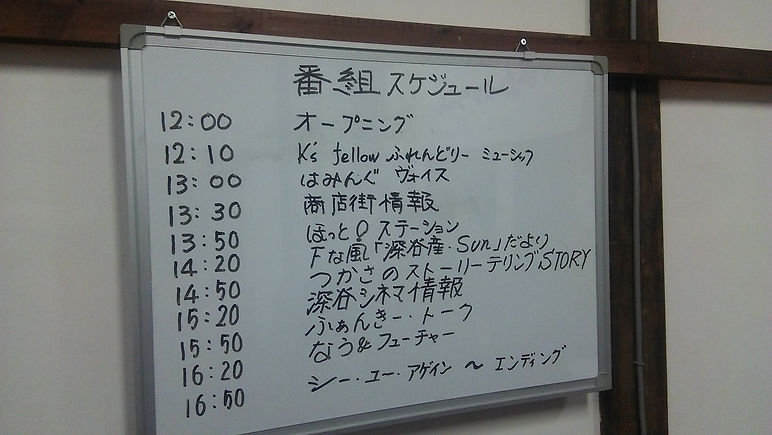 番組スケジュール
12:00 オープニング
12:10 K's fellow ふれんどりー ミュージック
13:00 はみんぐ ヴォイス
13:30 商店街情報
13:50 ほっと ステーション
14:20 Fな風「深谷産・Sun」だより
14:50 つかさのストーリーテリングSTORY
15:20 深谷シネマ情報
15:50 ふぁんきー・トーク
16:20 なう&フューチャー
16:50 シー・ユー・アゲイン 〜 エンディング